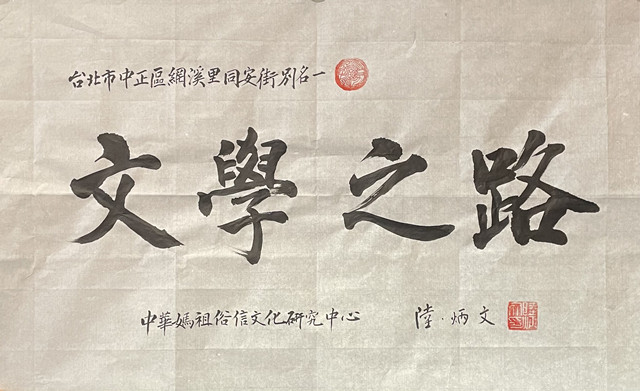 台北市中正區網溪里同安街別名一
文學之路
中華媽祖俗信文化研究中心 陸·炳文